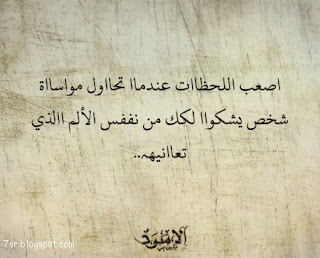 اصعب اللحظاات عندماا تحااول مواسااة
شخص يشكواا لكك من نففس الألم االذي
تعاانيهہ..
الاسود
7sr.blogspot.com